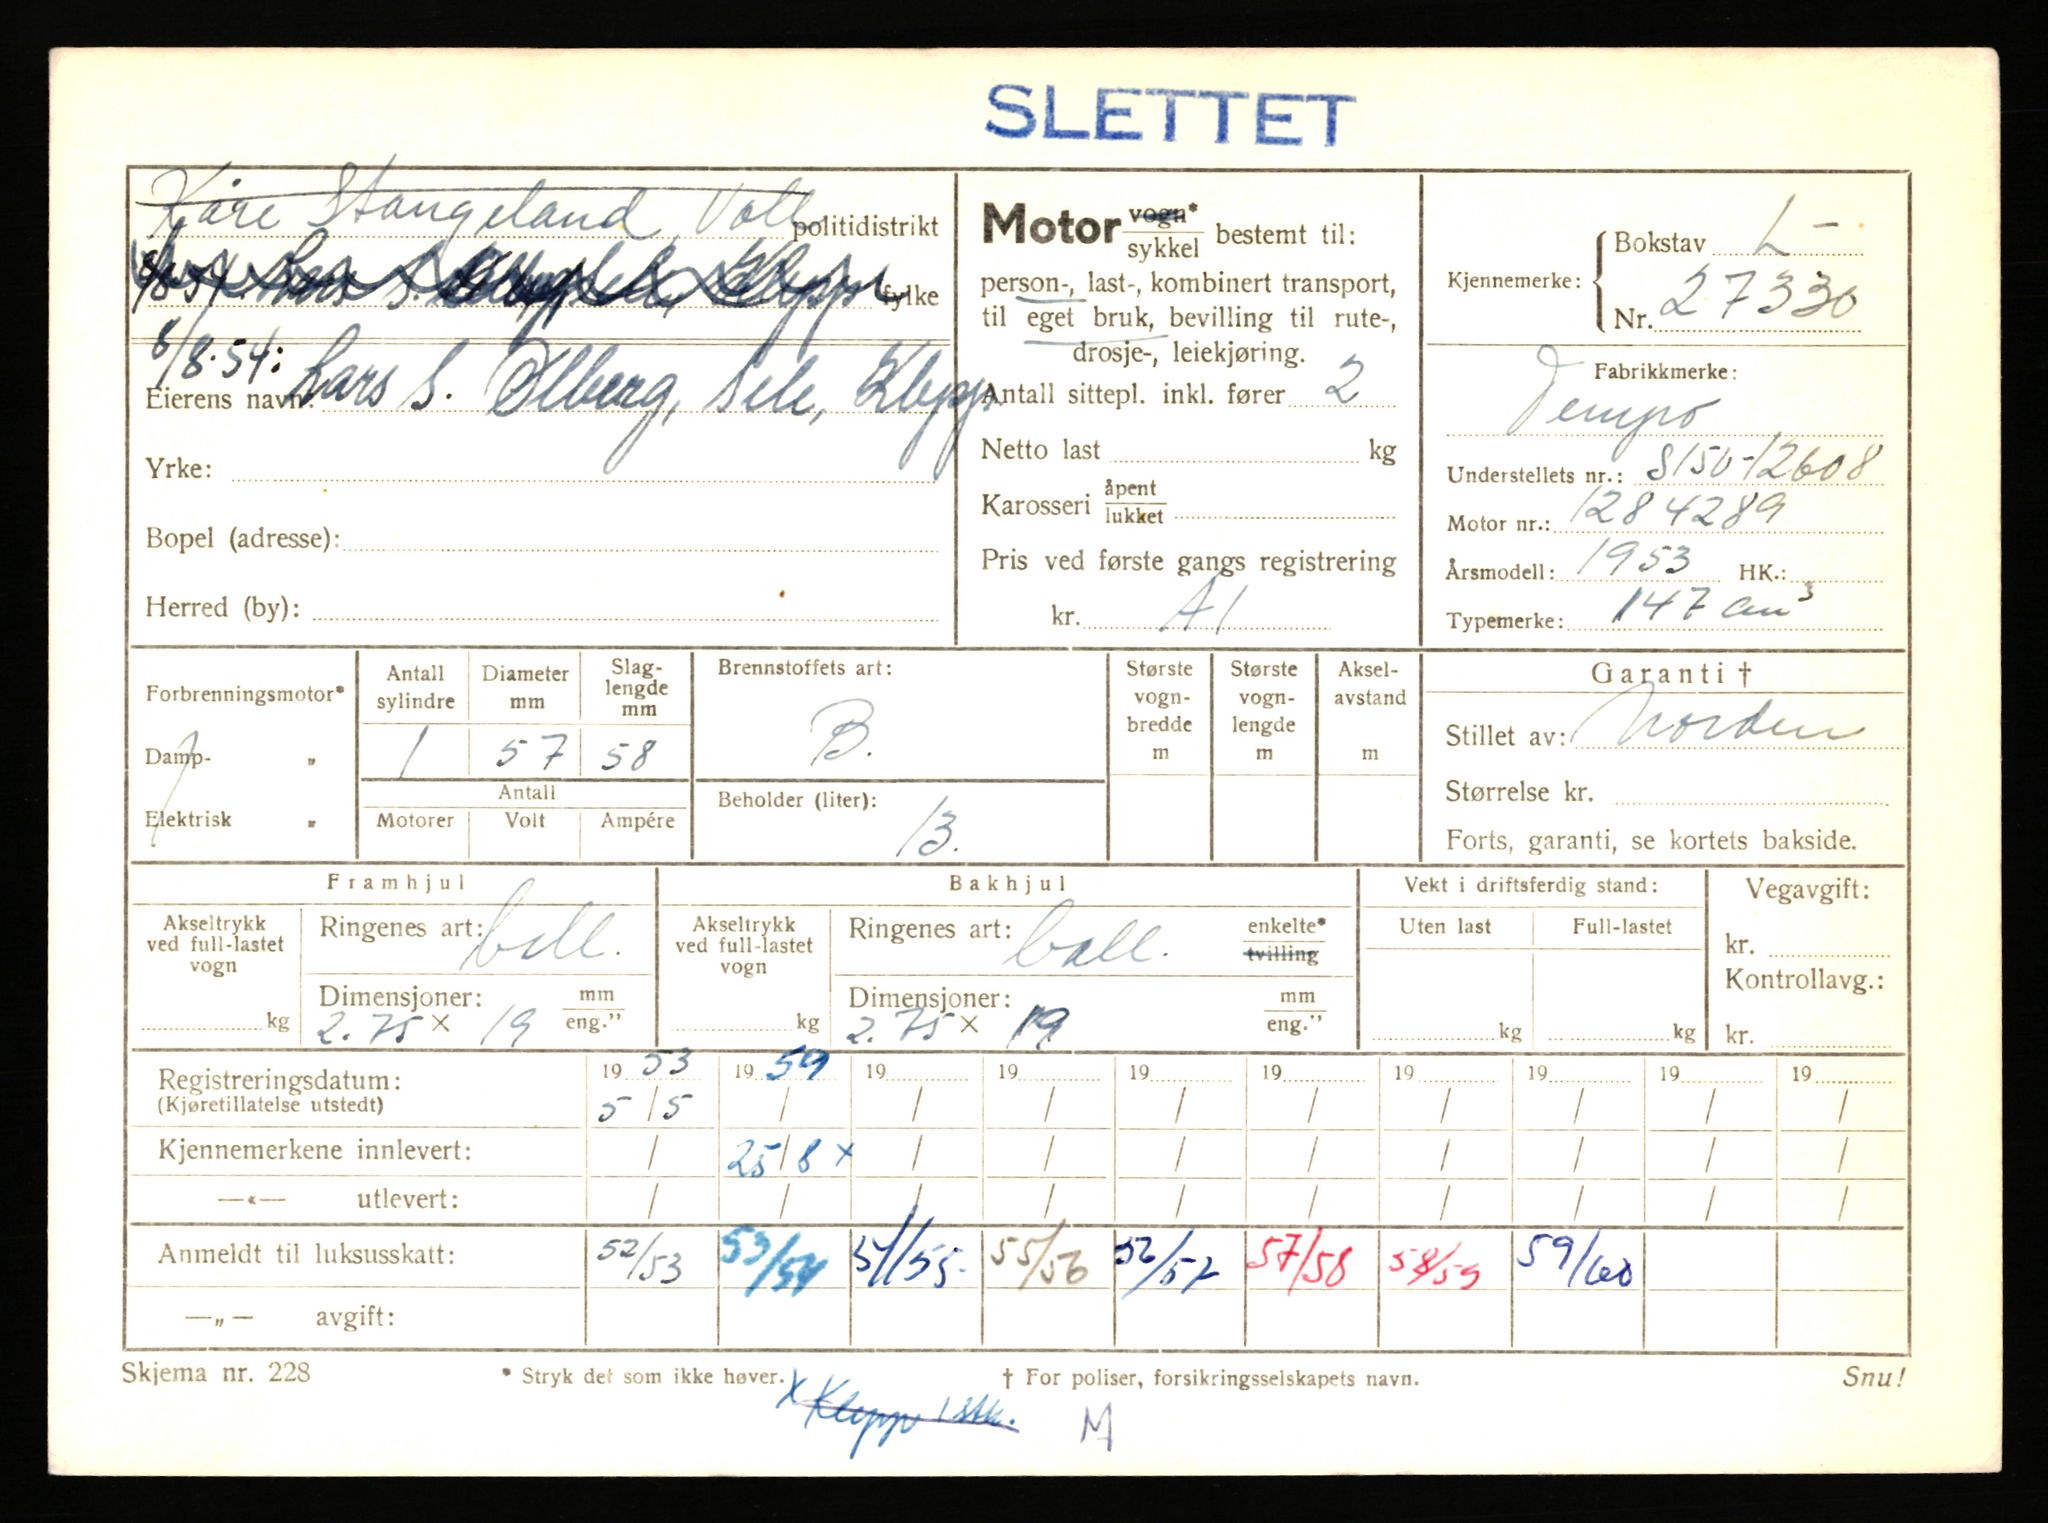 SLETTET
Kåre Stangeland, Voll politidistrikt
fylke
6/8-54: Lars S. Ølberg, Sele, Klepp.
Eierens navn:
Yrke:
Bopel (adresse):
Herred (by):
Motor vogn* / sykkel bestemt til:
person-, last-, kombinert transport,
til eget bruk, bevilling til rute-,
drosje-, leiekjøring.
Antall sittepl. inkl. fører 2
Netto last kg
Karosseri åpent / lukket
Pris ved første gangs registrering
kr. A1
Kjennemerke: Bokstav L-
Nr. 27330
Fabrikkmerke:
Tempo
Understellets nr.: S150-12608
Motor nr.: 1284289
Årsmodell: 1953 HK.:
Typemerke: 147 cm³
Forbrenningsmotor*
Damp- "
Elektrisk "
Antall sylindre Diameter mm Slag-lengde mm
1 57 58
Antall
Motorer Volt Ampére
Brennstoffets art:
B.
Beholder (liter):
13.
Største vogn-bredde m
Største vogn-lengde m
Aksel-avstand m
Garanti †
Stillet av: Norden
Størrelse kr.
Forts, garanti, se kortets bakside.
Framhjul
Akseltrykk ved full-lastet vogn
kg
Ringenes art: ball.
Dimensjoner: mm / eng."
2.75 x 19
Bakhjul
Akseltrykk ved full-lastet vogn
kg
Ringenes art: ball. enkelte* / tvilling
Dimensjoner: mm / eng."
2.75 x 19
Vekt i driftsferdig stand:
Uten last Full-lastet
kg kg
Vegavgift:
kr.
Kontrollavg.:
kr.
Registreringsdatum: 19 53 19 59 19 19 19 19 19 19 19 19
(Kjøretillatelse utstedt) 5/5 / / / / / / / / /
Kjennemerkene innlevert: / 25/8 x / / / / / / / /
—«— utlevert: / / / / / / / / / /
Anmeldt til luksusskatt: 52/53 53/54 54/55 55/56 56/57 57/58 58/59 59/60
—„— avgift:
Skjema nr. 228 * Stryk det som ikke høver. † For poliser, forsikringsselskapets navn. Snu!
x Klepp 1 stk. M